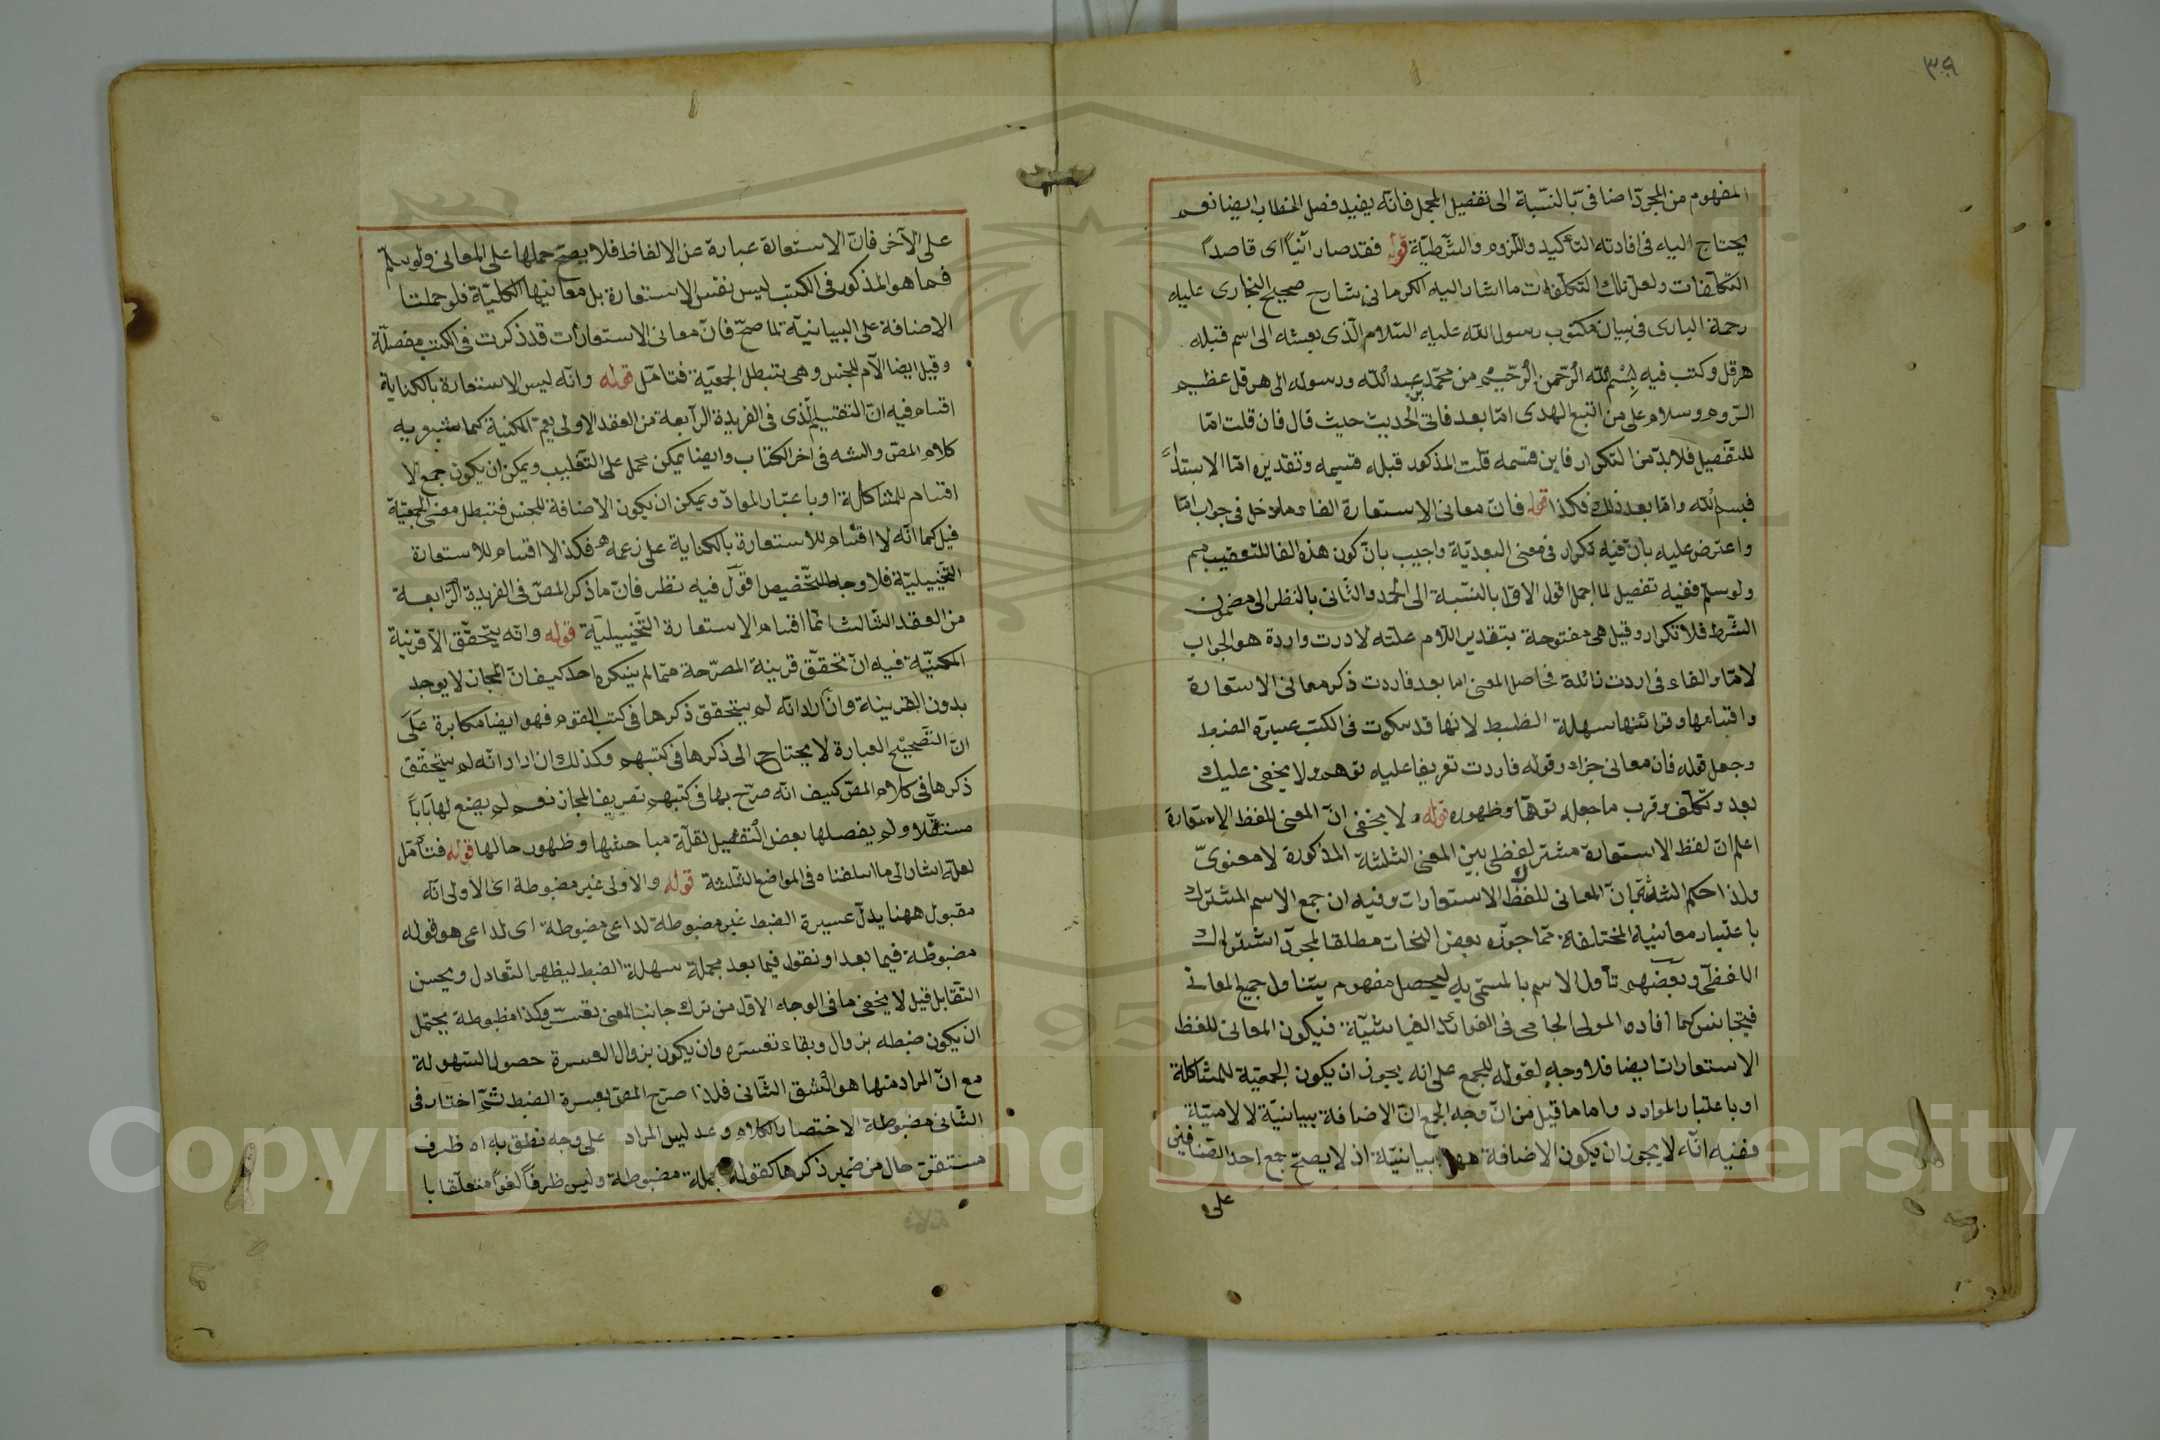 ٣٩
المفهوم من المجرّد اضافىّ بالنّسبة الى تفصيل المجمل فانّه يفيد فصل الخطاب ايضا نعم
يحتاج اليه فى افادته التأكيد واللّزوم والشّرطيّة قوله فقد صار آتياً اى قاصداً
التكلّفات ولعلّ تلك التكلّفات ما اشار اليه الكرمانى شارح صحيح البخارى عليه
رحمة البارى فى بيان مكتوب رسول الله عليه السّلام الّذى بعثه الى اسم قبله
هرقل وكتب فيه بِسْمِ الله الرّحمن الرّحيم من محمّد بن عبد الله ورسوله الى هرقل عظيم
الرّوم وسلام على من اتبع الهدى امّا بعد فانّى الحديث حيث قال فان قلت امّا
للتفصيل فلا بدّ من التكرار فاين قسمه قلت المذكور قبله قسيمه وتقديره امّا الابتداءً
فبسم الله وامّا بعد ذلك فكذا قوله فانّ معانى الاستعارة الفاء داخل فى جواب امّا
واعترض عليه بانّ فيه تكرار فى معنى البعديّة واجيب بانّ كون هذه الفا للتعقيب
ولو سلّم ففيه تفصيل لما اجمل اقول الاوّل بالنسّبة الى الحمد والثّانى بالنظر الى مضمون
الشّرط فلا تكرار وقيل هى مفتوحة بتقدير اللّام علّته لاردت واردة هو الجواب
لامّا والفاء فى اردت زائدة فحاصل المعنى اما بعد فاردت ذكر معانى الاستعارة
واقسامها وقرائنها سهلة الظبط لانها قد ذكرت فى الكتب عسيرة الضبط
وجعل قوله فان معانى جزاء وقوله فاردت تفريعا عليه توهم ولا يخفى عليك
بعد وتكلف وقرب ما جعله توهّما وظهوره قوله ولا يخفى انّ المعنى للفظ الاستعارة
اعلم انّ لفظ الاستعارة مشترك لفظى بين المعنى الثلثة المذكورة لا معنوىّ
ولذا حكم الشه بانّ المعانى للفظ الاستعارات وفيه ان جمع الاسم المشترك
باعتبار معانيه المختلفة ممّا جوّزه بعض النحات مطلقا لمجرّد اشتراك
اللفظىّ وبعضهم تأوّل الاسم بالمسمّى به ليحصل مفهوم يتناول جميع المعانى
فيتجانس كما افاده المولى الجامى فى الفوائد الضيائيّة فيكون المعانى للفظ
الاستعارات ايضا فلا وجه لقوله للجمع على انه يجوز ان يكون الجمعيّة للمشاكلة
او باعتبار الموارد واما ما قيل من انّ وجه الجمع انّ الاضافة بيانيّة لا لاميّة
ففيه انّه لا يجوز ان يكون الاضافة بيانيّة اذ لا يصحّ جمع احد المتضايفين
على
على الآخر فانّ الاستعارة عبارة عن الالفاظ فلا يصحّ حملها على المعانى ولو سلّم
فما هو المذكور فى الكتب ليس نفس الاستعارة بل معانيها الكليّة فلو حملنا
الاضافة على البيانيّة لما صحّ فانّ معانى الاستعارات قد ذكرت فى الكتب مفصّلة
وقيل ايضا الّام للجنس وهى تبطل الجمعيّة فتامّل قوله وانّه ليس الاستعارة بالكناية
اقسام فيه انّ التقسيم الّذى فى الفريدة الرّابعة من العقد الاولى يعمّ المكنية كما
كلام المصّ والشه فى اخر الكتاب وايضا يمكن حمل على التّغليب ويمكن ان يكون جمع الا
اقسام للمشاكلة او باعتبار الموادّ ويمكن ان يكون الاضافة للجنس فتبطل معنى الجمعيّة
قيل كما انّه لا اقسام للاستعارة بالكناية على زعمه فكذا لا اقسام للاستعارة
التّخييليّة فلا وجه للتّخصيص اقول فيه نظر فانّ ما ذكر المصّ فى الفريدة الرّابعة
من العقد الثّالث انّما اقسام الاستعارة التّخييليّة قوله وانه يتحقّق الاّ قرنية
المكنيّة فيه انّ تحقّق قرينة المصرّحة ممّا لم ينكره احد كيف انّ المجاز لا يوجد
بدون القرينة وان اراد انّه لم يتحقق ذكرها فى كتب القوم فهو ايضا مكابرة عَلَى
انّ التّصحيح العبارة لا يحتاج الى ذكرها فى كتبهم وكذلك ان اراد انّه لم يتحقّق
ذكرها فى كلام المصّ كيف انّه صرّح بها فى كتبهم تعريف المجاز نعم لم يضع لها باباً
مستقلّا ولم يفصلها بعض التّفصيل لقلّة مباحثها وظهور حالها قوله فتأمّل
لعلّه اشار الى ما اسلفناه فى المواضع الثّلثة قوله والاولى غير مضبوطة اى الاولى انّه
مقبول ههنا يدلّ عسيرة الضبط غير مضبوطة لداعى مضبوطة اى لداعى هو قوله
مضبوطة فيما بعد او نقول فيما بعد مجملة سهلة الضبط ليظهر التّعادل ويحسن
التّقابل قيل لا يخفى ما فى الوجه الاوّل من ترك جانب المعنى وكذا مظبوطة يحتمل
ان يكون ضبطه بزوال وبقاء تعسّره وان يكون بزوال العسرة حصول السّهولة
مع انّ المراد منها هو الشّق الثّانى فلذا صرّح المصّ بعسرة الضبط ثمّ اختار فى
الثّانى مضبوطة الاختصار الكلام وعد ليس المراد على وجه نطق به اه ظرف
مستقرّ حال من ضمير ذكرها كقوله مجملة مضبوطة وليس ظرفاً لغواً متعلّقا با
Copyright © King Saud University